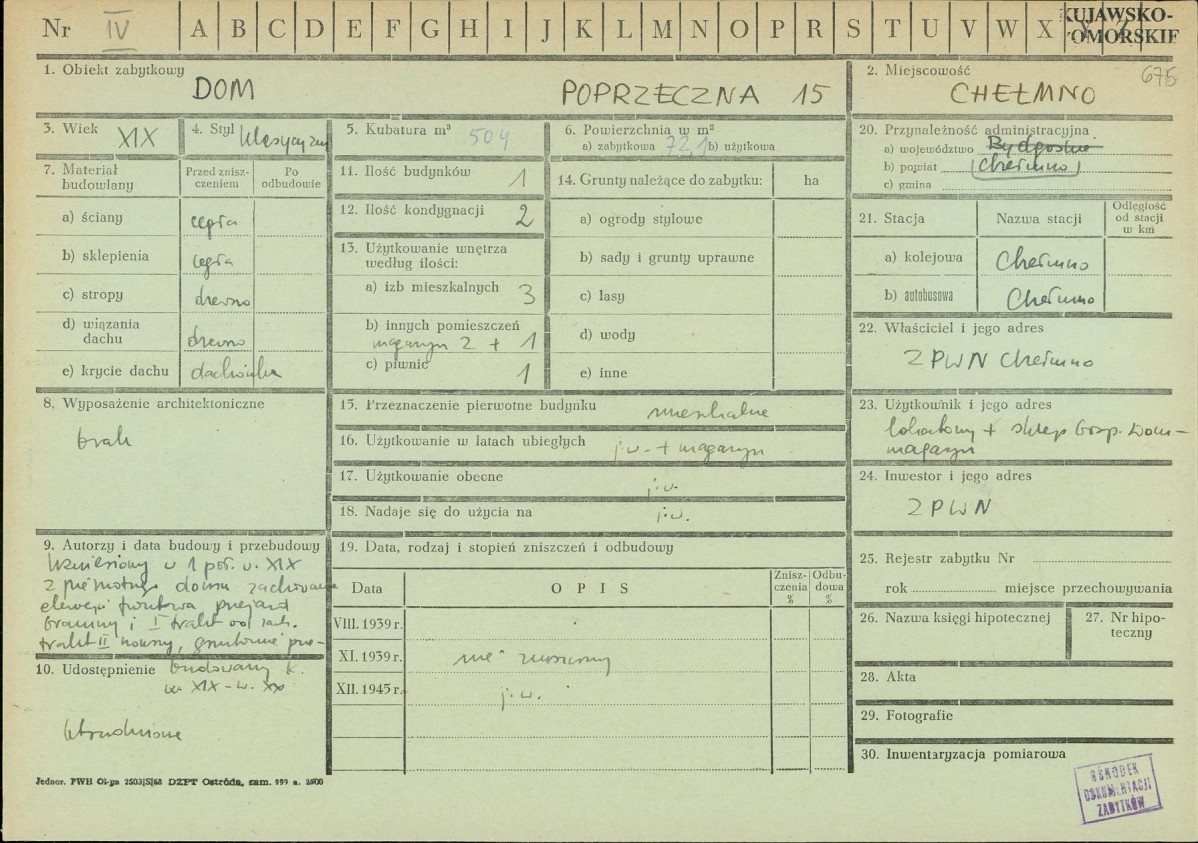 Nr IV A B C D E F G H I J K L M N O P R S T U V W X Y Z KUJAWSKO-
POMORSKIE
1. Obiekt zabytkowy
DOM POPRZECZNA 15
2. Miejscowość 675
CHEŁMNO
3. Wiek XIX
4. Styl klasycyzm
5. Kubatura m³ 504
6. Powierzchnia w m²
a) zabytkowa 72,1 b) użytkowa
7. Materiał budowlany
Przed zniszczeniem
Po odbudowie
a) ściany cegła
b) sklepienia cegła
c) stropy drewno
d) wiązania dachu drewno
e) krycie dachu dachówka
8. Wyposażenie architektoniczne
brak
9. Autorzy i data budowy i przebudowy
Wzniesiony w 1 poł. w. XIX
z pierwotnego domu zachowana
elewacja frontowa przejazd
bramny i I trakt od zach.
trakt II nowszy, gruntownie prze-
budowany k.
w. XIX - w. XX
10. Udostępnienie
utrudnione
11. Ilość budynków 1
12. Ilość kondygnacji 2
13. Użytkowanie wnętrza
według ilości:
a) izb mieszkalnych 3
b) innych pomieszczeń
magazyn 2 + 1
c) piwnic 1
14. Grunty należące do zabytku: ha
a) ogrody stylowe
b) sady i grunty uprawne
c) lasy
d) wody
e) inne
15. Przeznaczenie pierwotne budynku mieszkalne
16. Użytkowanie w latach ubiegłych j.w. + magazyn
17. Użytkowanie obecne j.w.
18. Nadaje się do użycia na j.w.
19. Data, rodzaj i stopień zniszczeń i odbudowy
Data OPIS Zniszczenia % Odbudowa %
VIII. 1939 r.
XI. 1939 r. nie zniszczony
XII. 1945 r. j.w.
20. Przynależność administracyjna
a) województwo Bydgoskie
b) powiat (Chełmno)
c) gmina
21. Stacja Nazwa stacji Odległość od stacji w km
a) kolejowa Chełmno
b) autobusowa Chełmno
22. Właściciel i jego adres
ZPWN Chełmno
23. Użytkownik i jego adres
lokatorzy + sklep Gosp. Dom-
magazyn
24. Inwestor i jego adres
ZPWN
25. Rejestr zabytku Nr
rok miejsce przechowywania
26. Nazwa księgi hipotecznej
27. Nr hipo-
teczny
28. Akta
29. Fotografie
30. Inwentaryzacja pomiarowa
OŚRODEK
DOKUMENTACJI
ZABYTKÓW
Jednor. PWH Ol-pn 2503|S|68 DZPT Ostróda, zam. 999 n. 2500